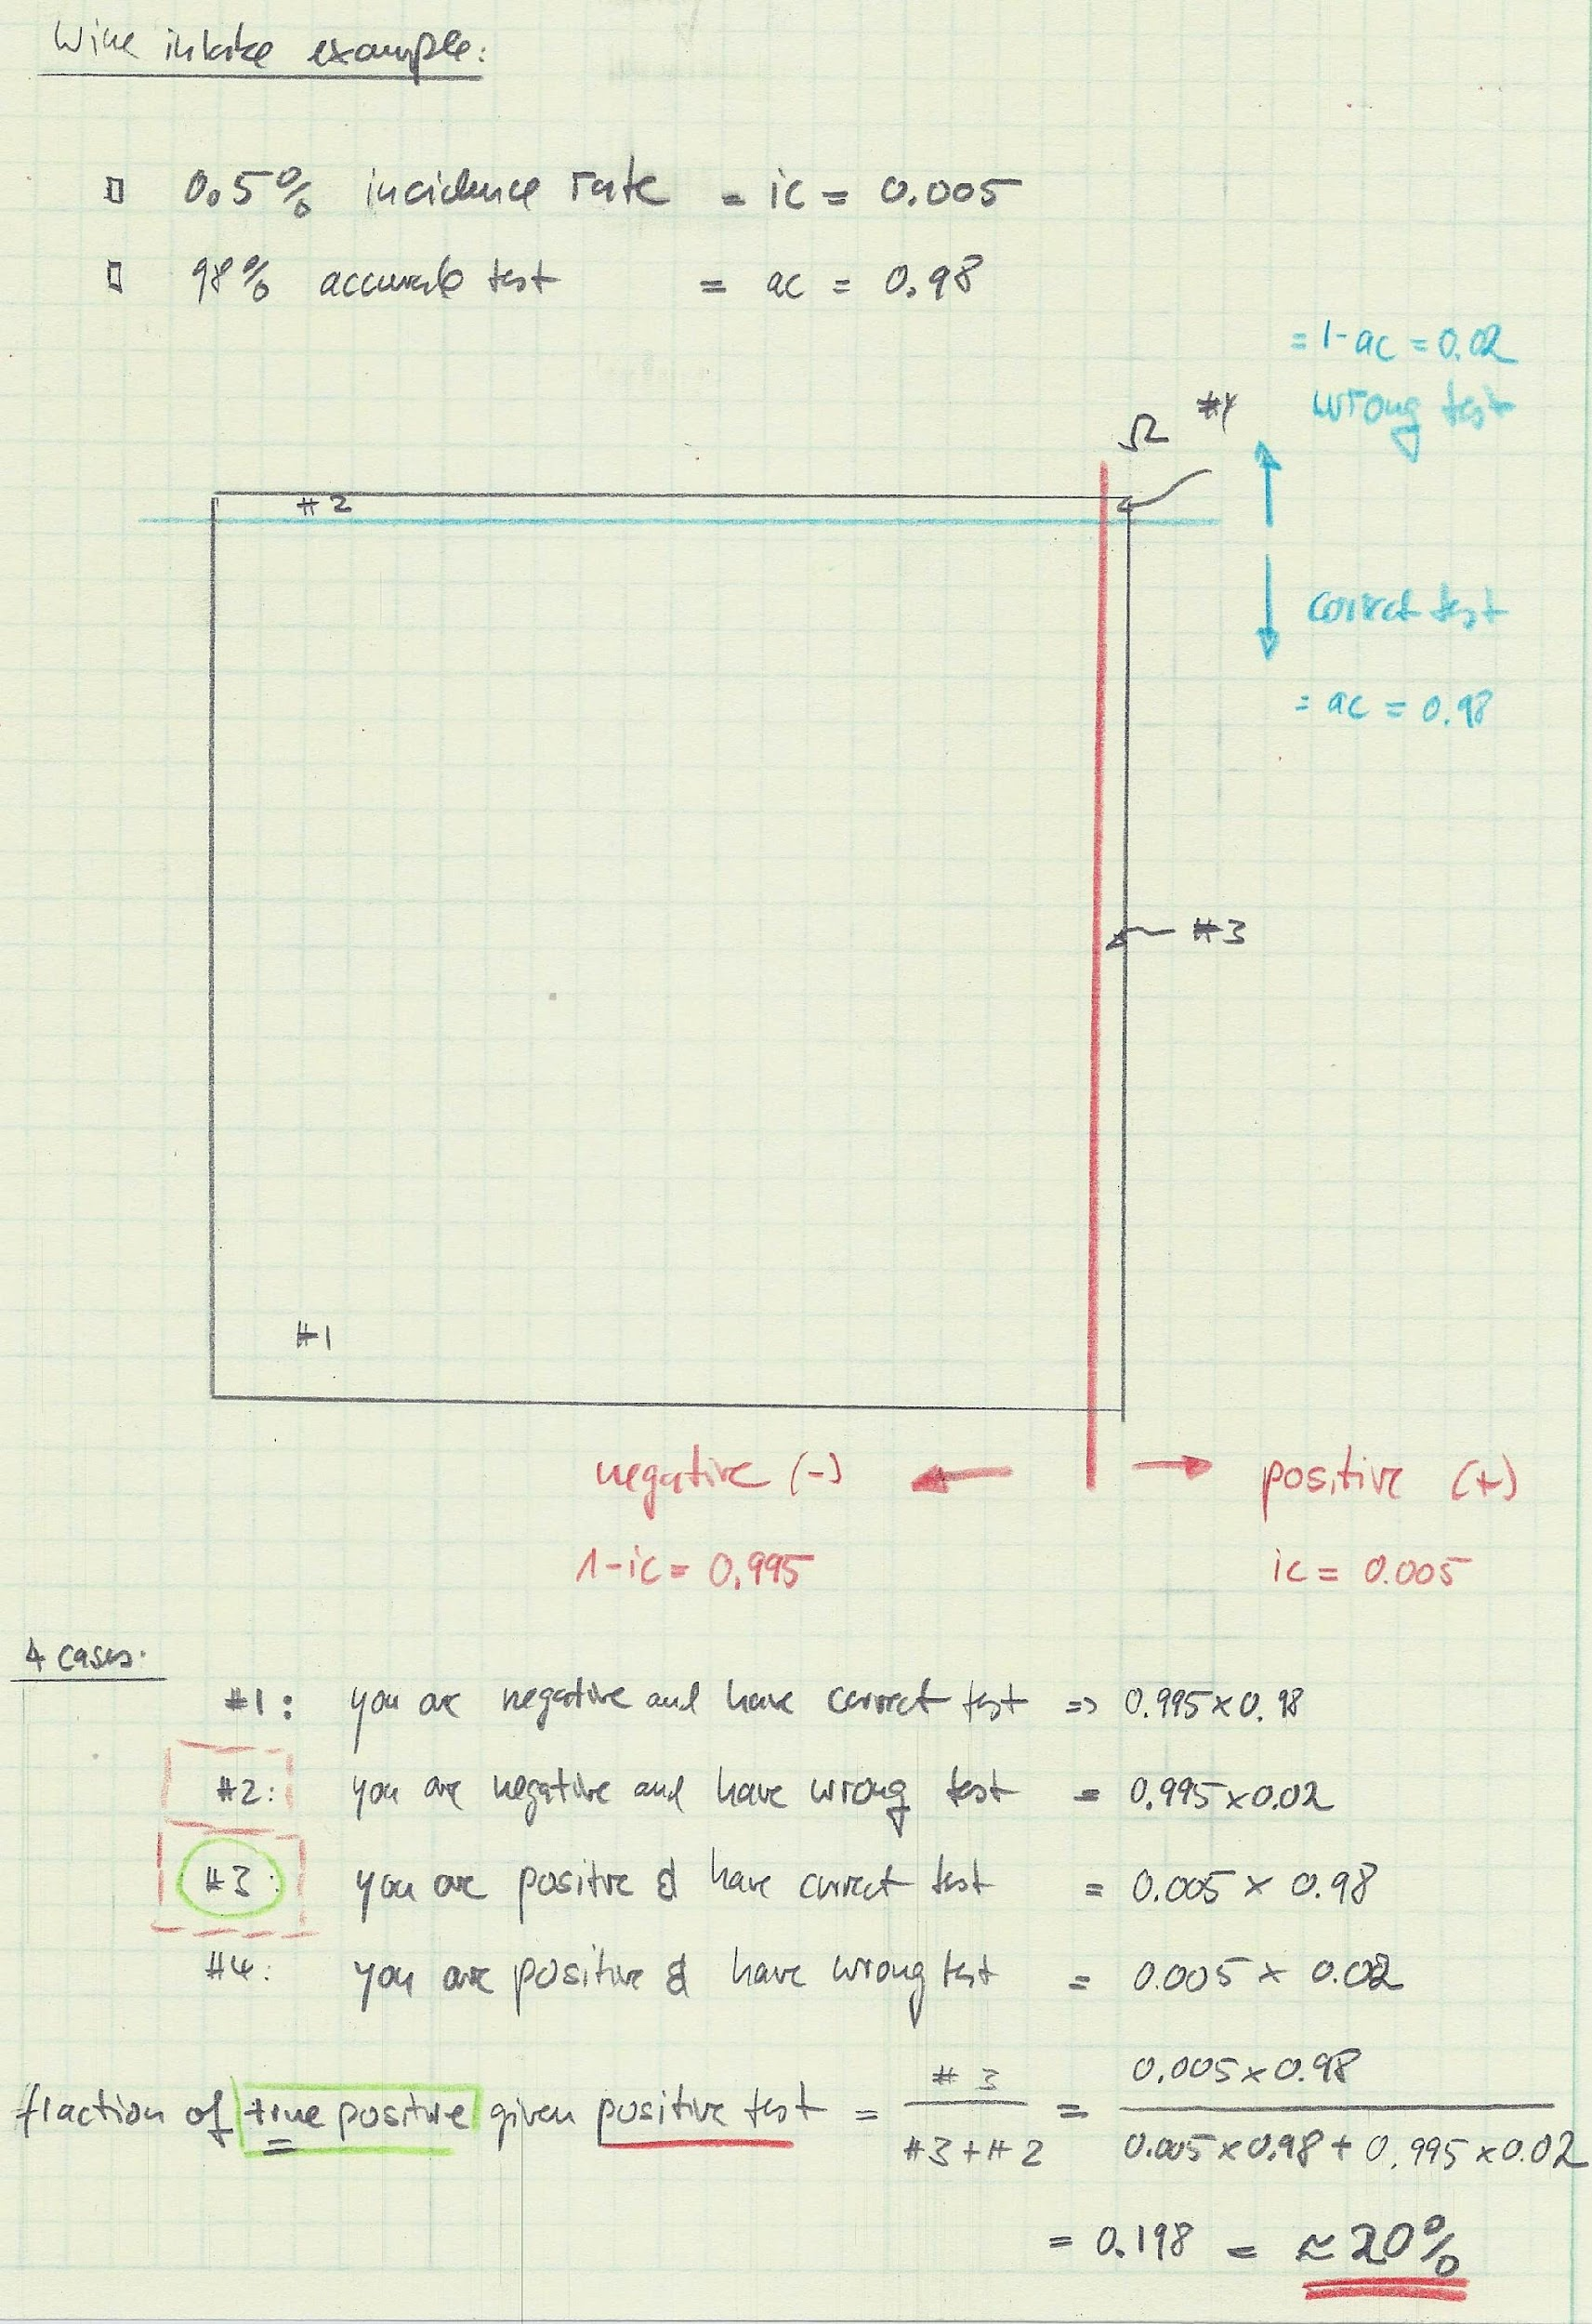 Wine intake example:
0.5% incidence rate = ic = 0.005
98% accurate test = ac = 0.98
= 1-ac = 0.02
wrong test
Ω #4
#2
correct test
= ac = 0.98
#3
#1
negative (-) positive (+)
1-ic = 0.995 ic = 0.005
4 cases:
#1: you are negative and have correct test => 0.995 x 0.98
#2: you are negative and have wrong test = 0.995 x 0.02
#3: you are positive & have correct test = 0.005 x 0.98
#4: you are positive & have wrong test = 0.005 x 0.02
fraction of true positive given positive test = #3 / #3 + #2 = 0.005 x 0.98 / 0.005 x 0.98 + 0.995 x 0.02
= 0.198 = ≈ 20%